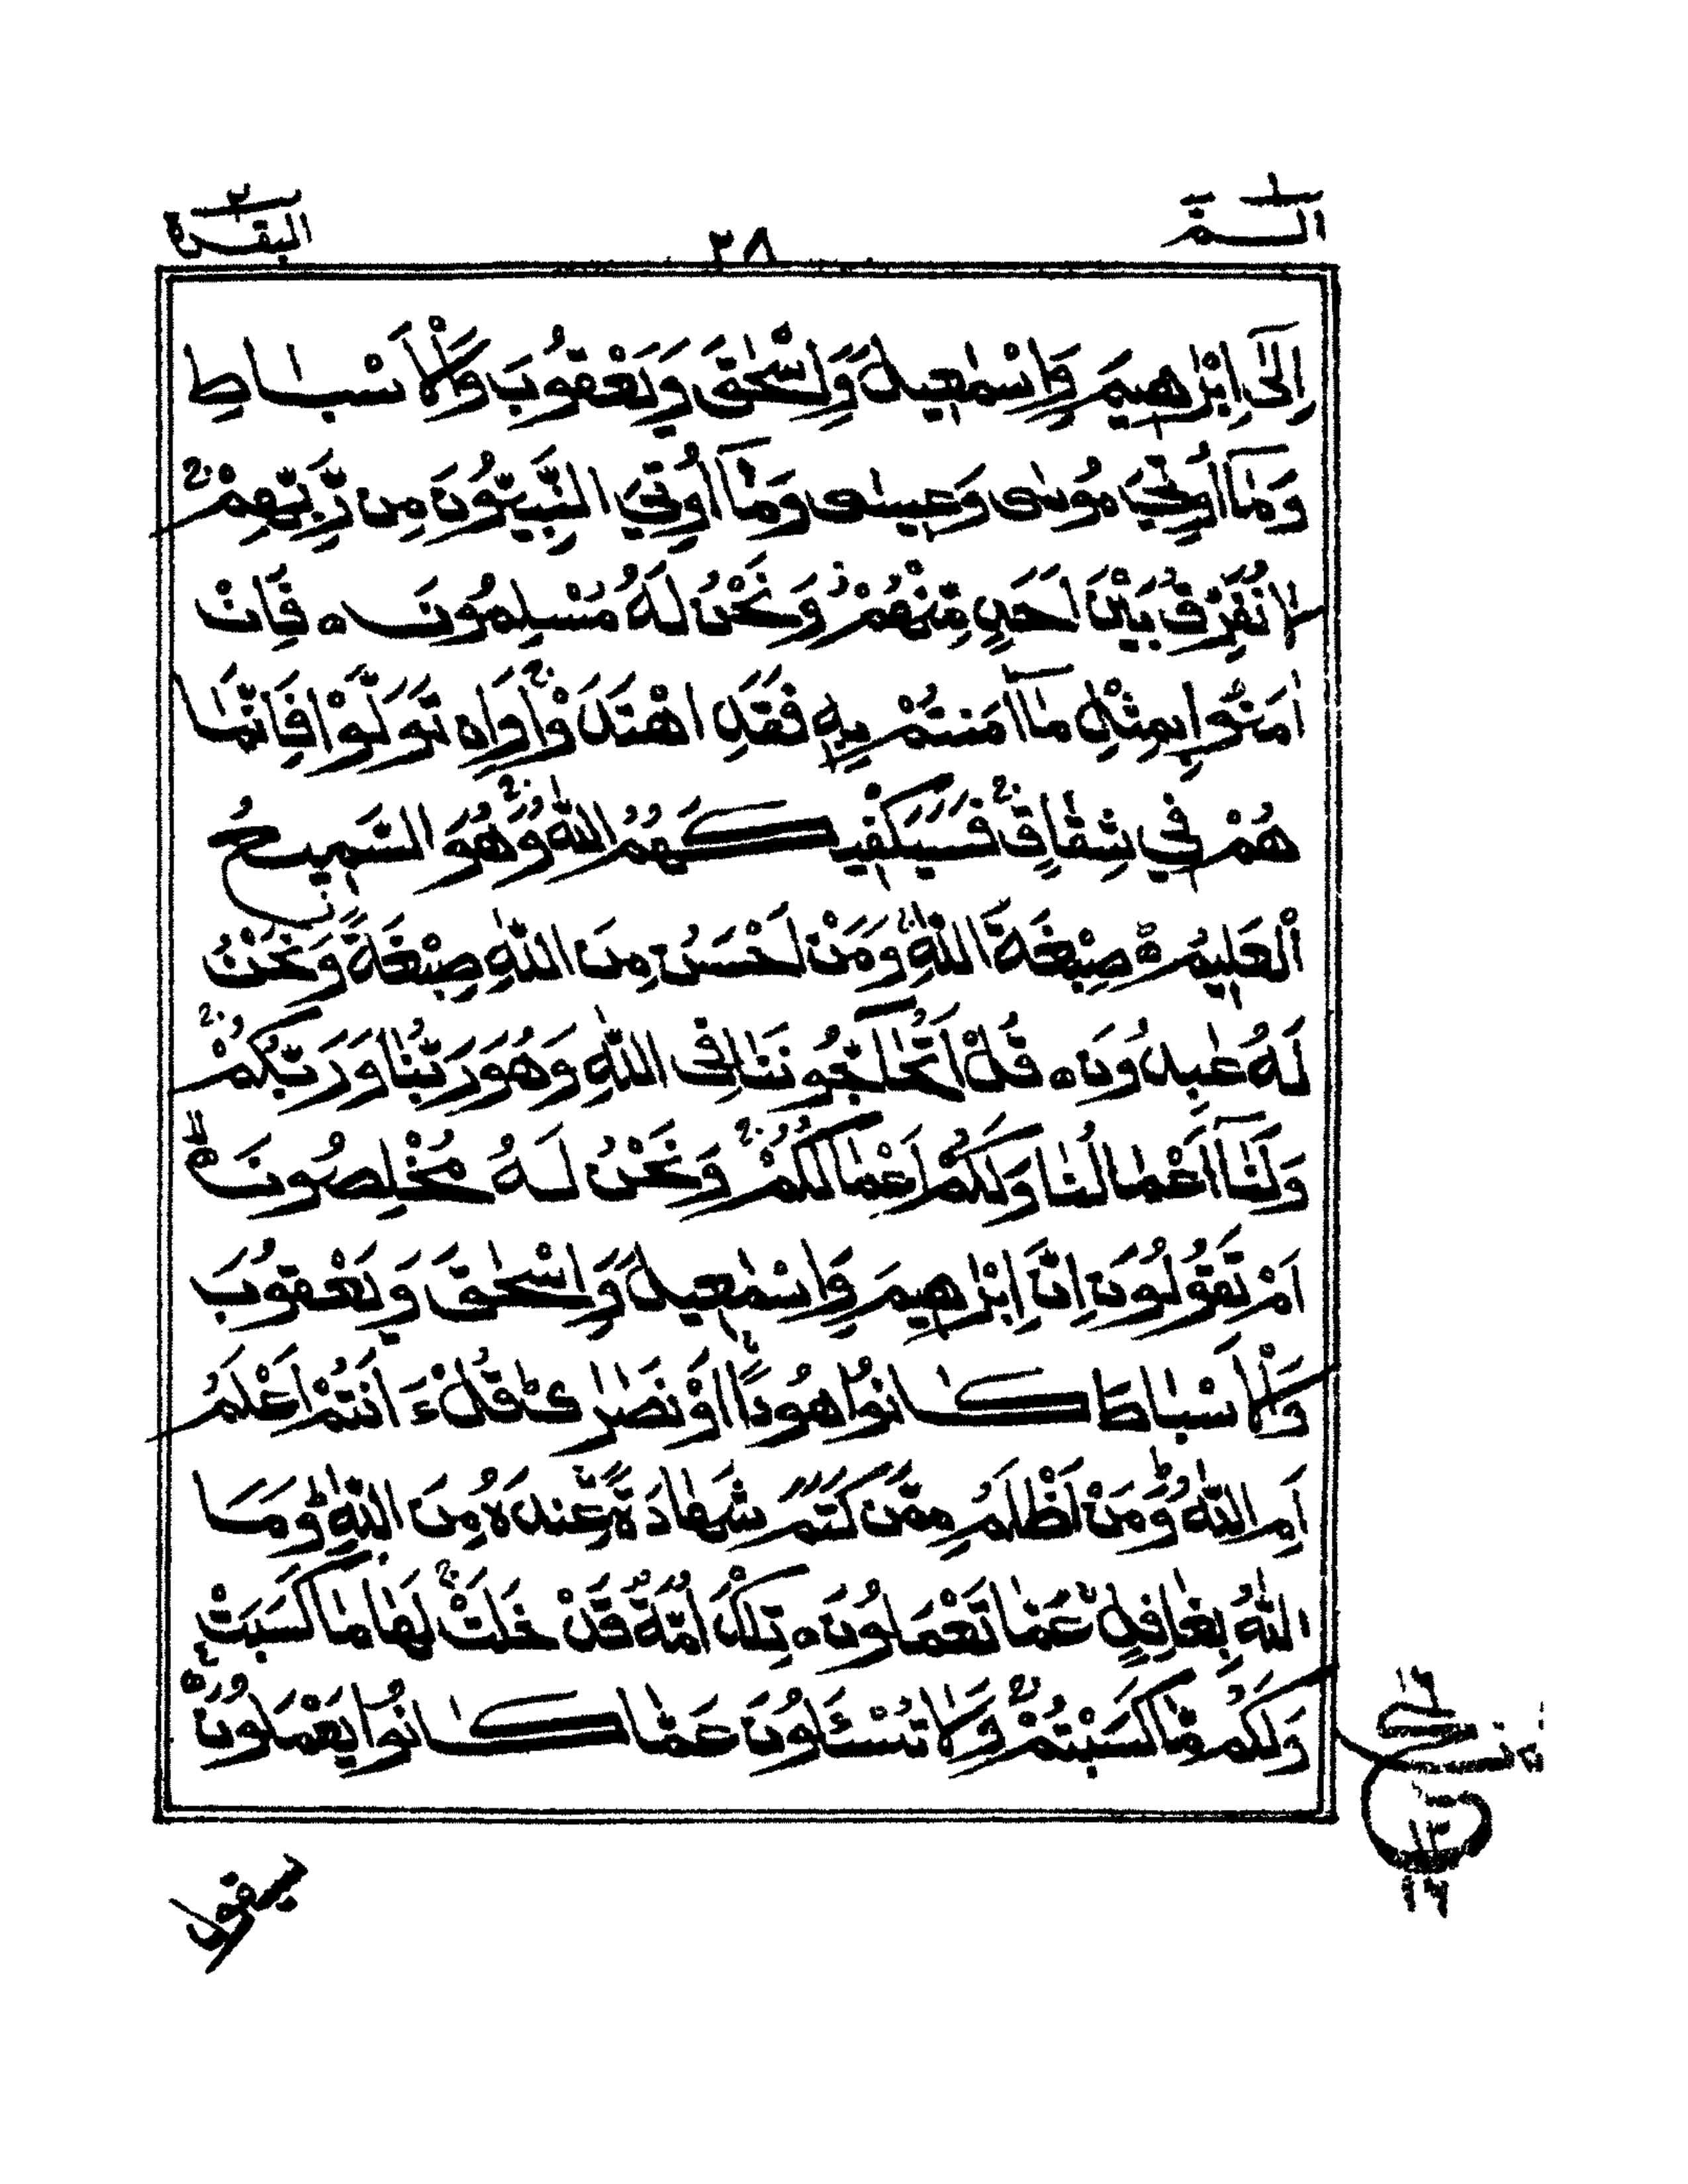 الٓمّٓ ١
٢٨
البقرة ٢
اِلٰٓى اِبْرٰهٖمَ وَاِسْمٰعِيْلَ وَاِسْحٰقَ وَيَعْقُوْبَ وَالْاَسْبَاطِ
وَمَآ اُوْتِيَ مُوْسٰى وَعِيْسٰى وَمَآ اُوْتِيَ النَّبِيُّوْنَ مِنْ رَّبِّهِمْ ۚ
لَا نُفَرِّقُ بَيْنَ اَحَدٍ مِّنْهُمْ ۖ وَنَحْنُ لَهٗ مُسْلِمُوْنَ ○ فَاِنْ
اٰمَنُوْا بِمِثْلِ مَآ اٰمَنْتُمْ بِهٖ فَقَدِ اهْتَدَوْا ۚ وَاِنْ تَوَلَّوْا فَاِنَّمَا
هُمْ فِيْ شِقَاقٍ ۚ فَسَيَكْفِيْكَهُمُ اللّٰهُ ۚ وَهُوَ السَّمِيْعُ
الْعَلِيْمُ ○ صِبْغَةَ اللّٰهِ ۚ وَمَنْ اَحْسَنُ مِنَ اللّٰهِ صِبْغَةً وَنَحْنُ
لَهٗ عٰبِدُوْنَ ○ قُلْ اَتُحَآجُّوْنَنَا فِى اللّٰهِ وَهُوَ رَبُّنَا وَرَبُّكُمْ ۚ
وَلَنَآ اَعْمَالُنَا وَلَكُمْ اَعْمَالُكُمْ ۚ وَنَحْنُ لَهٗ مُخْلِصُوْنَ ○
اَمْ تَقُوْلُوْنَ اِنَّ اِبْرٰهٖمَ وَاِسْمٰعِيْلَ وَاِسْحٰقَ وَيَعْقُوْبَ
وَالْاَسْبَاطَ كَانُوْا هُوْدًا اَوْ نَصٰرٰى ؕ قُلْ ءَاَنْتُمْ اَعْلَمُ
اَمِ اللّٰهُ ؕ وَمَنْ اَظْلَمُ مِمَّنْ كَتَمَ شَهَادَةً عِنْدَهٗ مِنَ اللّٰهِ ؕ وَمَا
اللّٰهُ بِغَافِلٍ عَمَّا تَعْمَلُوْنَ ○ تِلْكَ اُمَّةٌ قَدْ خَلَتْ ۚ لَهَا مَا كَسَبَتْ
وَلَكُمْ مَّا كَسَبْتُمْ ۚ وَلَا تُسْـَٔلُوْنَ عَمَّا كَانُوْا يَعْمَلُوْنَ ○
١٦
ع
١٣
١٦
سيقول